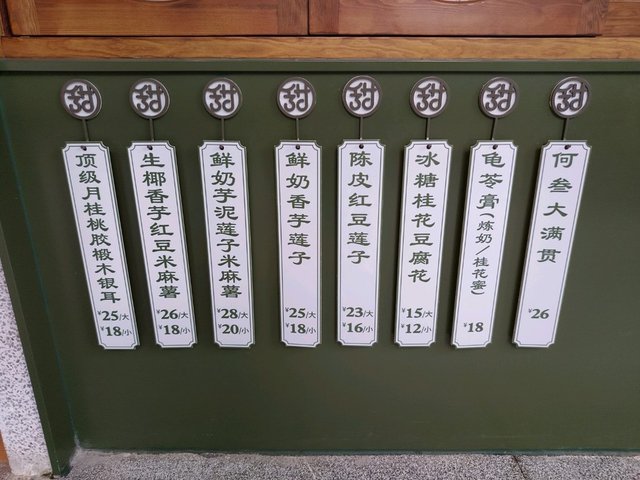 顶级月桂桃胶椴木银耳
¥25/大
¥18/小
生椰香芋红豆米麻薯
¥26/大
¥18/小
鲜奶芋泥莲子米麻薯
¥28/大
¥20/小
鲜奶香芋莲子
¥25/大
¥18/小
陈皮红豆莲子
¥23/大
¥16/小
冰糖桂花豆腐花
¥15/大
¥12/小
龟苓膏(炼奶/桂花蜜)
¥18
何叁大满贯
¥26